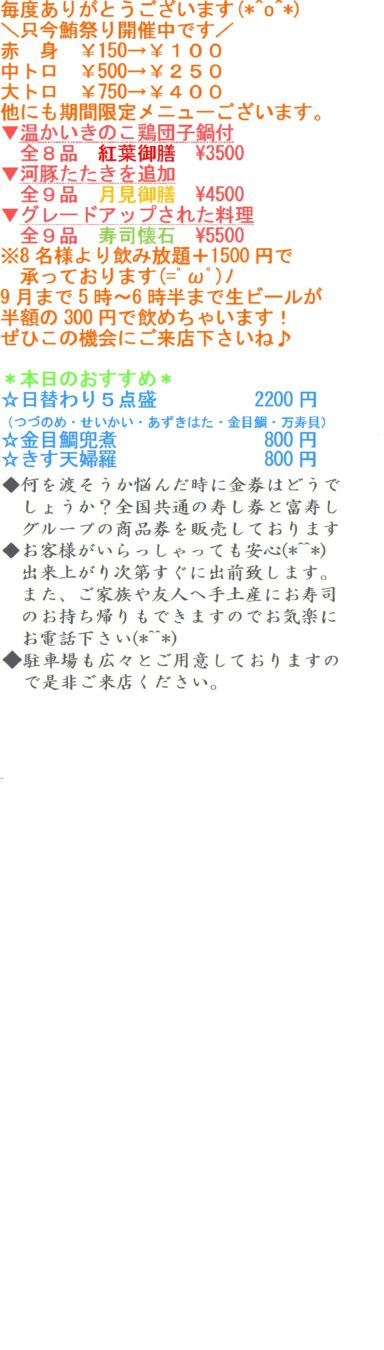 毎度ありがとうございます(*^o^*)
＼只今鮪祭り開催中です／
赤　身　￥150→￥１００
中トロ　￥500→￥２５０
大トロ　￥750→￥４００
他にも期間限定メニューございます。
▼温かいきのこ鶏団子鍋付
全８品　紅葉御膳　¥3500
▼河豚たたきを追加
全９品　月見御膳　¥4500
▼グレードアップされた料理
全９品　寿司懐石　¥5500
※8名様より飲み放題＋1500円で
承っております(=ﾟωﾟ)ﾉ
9月まで5時～6時半まで生ビールが
半額の300円で飲めちゃいます！
ぜひこの機会にご来店下さいね♪
＊本日のおすすめ＊
☆日替わり５点盛　2200円
（つづのめ・せいかい・あずきはた・金目鯛・万寿貝）
☆金目鯛兜煮　800円
☆きす天婦羅　800円
◆何を渡そうか悩んだ時に金券はどうで
しょうか？全国共通の寿し券と富寿し
グループの商品券を販売しております
◆お客様がいらっしゃっても安心(*^^*)
出来上がり次第すぐに出前致します。
また、ご家族や友人へ手土産にお寿司
のお持ち帰りもできますのでお気楽に
お電話下さい(*^^*)
◆駐車場も広々とご用意しておりますの
で是非ご来店ください。